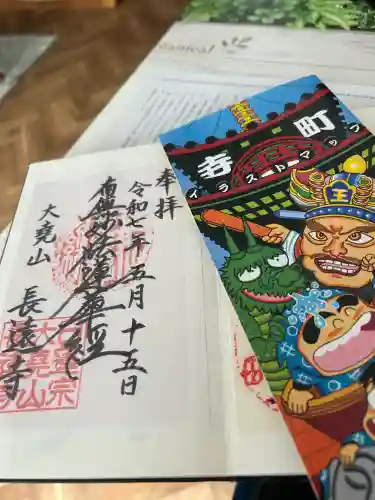 奉拝
令和七年五月十五日
南無妙法蓮華経
大堯山
長遠寺
寺町
イラストマップ
王